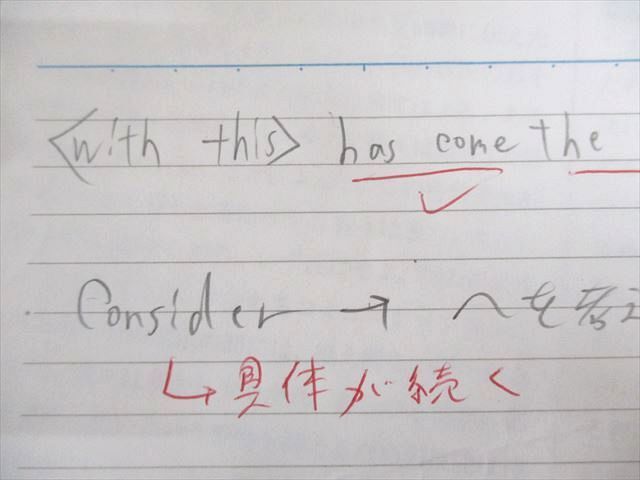 <with this> has come the
Consider → へを考
↳ 具体が続く